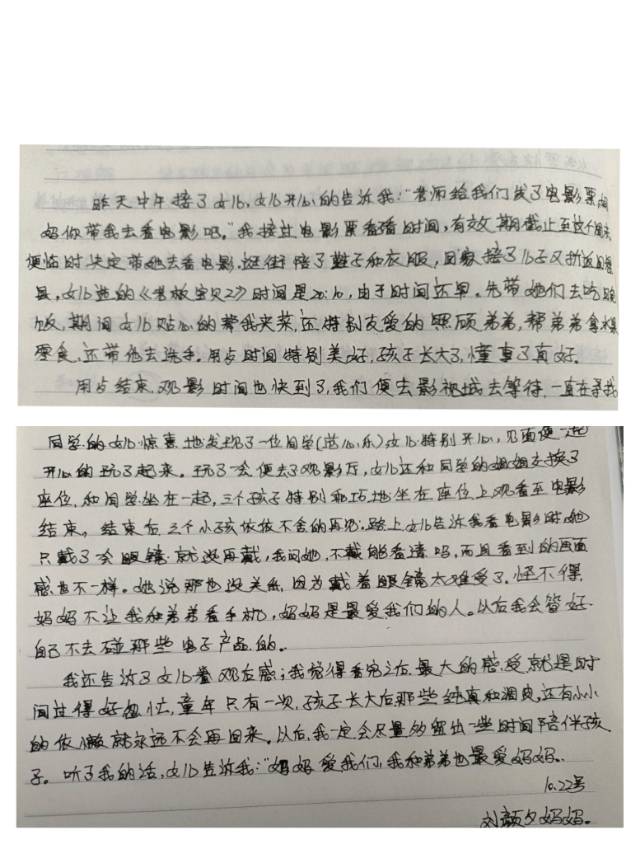 昨天中午接了女儿,女儿开心的告诉我:"老师给我们发了电影票
妈你带我去看电影吧。"我接过电影票看看时间,有效期截止至这个周末
便临时决定带她去看电影,逛街 陪了鞋子和衣服,回家接了儿子又折返
县,女儿选的《老板宝贝2》时间是20:10,由于时间还早。先带她们去吃
饭,期间女儿贴心的帮我夹菜,还特别友爱的照顾弟弟,帮弟弟拿水果
零食,还带他去洗手。用歺时间特别美好,孩子长大了,懂事了真好。
用歺结束,观影时间也快到了,我们便去影视城去等待,一直在寻找
同学的女儿惊喜地发现了一位同学(范心乐)女儿特别开心,见面便一起
开心的玩了起来。玩了一会便去了观影厅,女儿还和同学的姐姐交换了
座位,和同学坐在一起,三个孩子特别乖巧地坐在座位上观看至电影
结束。结束后,三个小孩依依不舍的再见,路上女儿告诉我看电影时她
只戴了一会眼镜就没再戴,我问她,不戴能看清吗,而且看到的画面
感也不一样。她说那也没关系,因为戴着眼镜太难受了,怪不得
妈妈不让我和弟弟看手机,妈妈是最爱我们的人。以后我会管好
自己不去碰那些电子产品的。
我还告诉了女儿我观后感;我觉得看完之后最大的感受就是时
间过得好匆忙,童年只有一次,孩子长大后那些纯真和调皮,还有小小
的依懒就永远不会再回来。以后,我一定会尽量多留出一些时间陪伴孩
子。听了我的话,女儿告诉我:"妈妈爱我们,我和弟弟也最爱妈妈。
10.22号
刘颜夕妈妈。